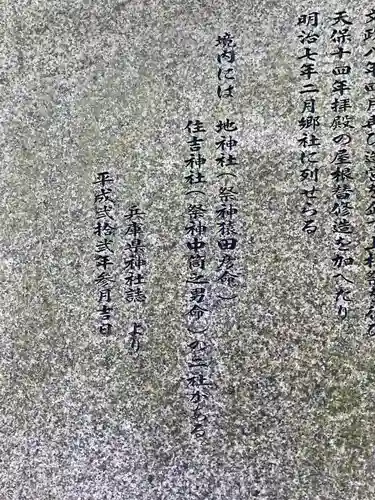 文政八年四月再び造営
天保十四年拝殿の屋根替修造を加へたり
明治七年二月郷社に列せらる
境内には 地神社(祭神猿田彦命)
住吉神社(祭神中筒之男命)の二社がある
兵庫県神社誌 より
平成弐拾弐年参月吉日